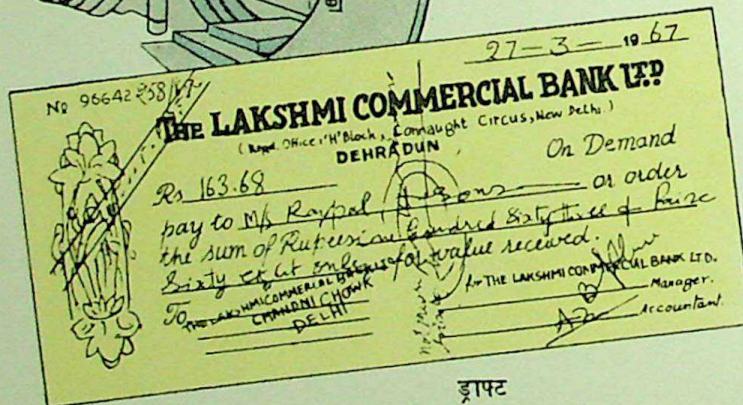 27 - 3 - 1967
№ 96642 258/67
THE LAKSHMI COMMERCIAL BANK LTD
(Regd. Office: 'H' Block, Connaught Circus, New Delhi.)
DEHRADUN
Rs 163.68 On Demand
pay to M/s Rajpal & Sons or order
the sum of Rupees one hundred Sixty three & Paise
Sixty eight only for value received.
To THE LAKSHMI COMMERCIAL BANK LTD.
CHANDNI CHOWK
DELHI
for THE LAKSHMI COMMERCIAL BANK LTD.
Manager.
Accountant.
ड्राफ्ट